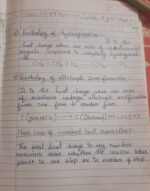 Enthalpy of hydrogenation:-
It is the
heat change when one mole of unsaturated
organic compound is completely hydrogen
CH2 = CH2 + H2 → CH3 - CH3
Enthalpy of allotropic transformation:-
It is the heat change when one mole
of substance undergoes allotropic modification
from one form to another form.
C(graphite) → C(diamond)
Hess Law of constant heat summation:-
The total heat change in any reaction
remains same whether the reaction takes
place in one step or in number of step